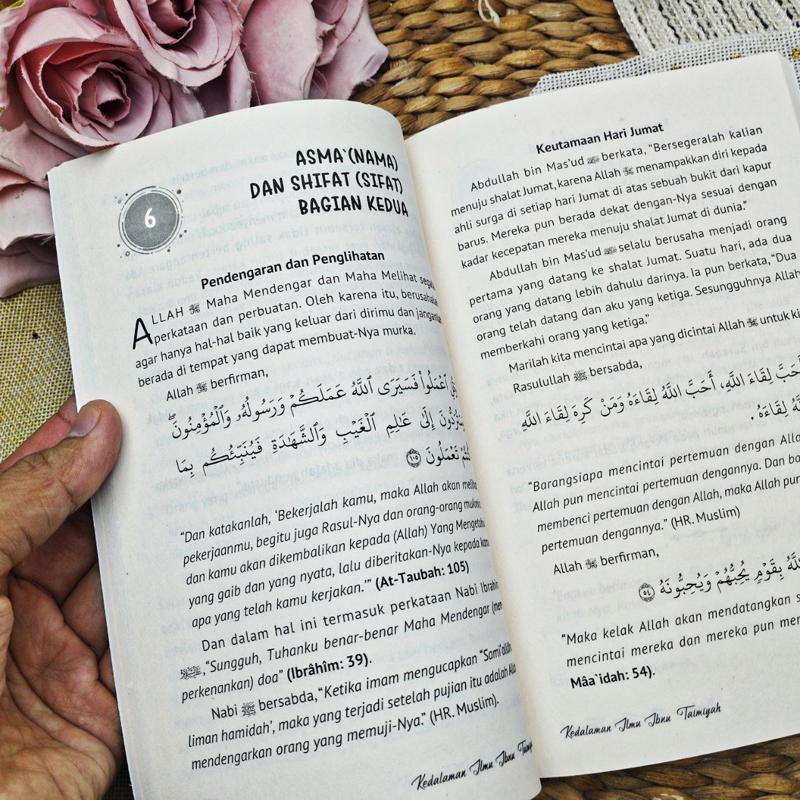 6
ASMA`(NAMA)
DAN SHIFAT (SIFAT)
BAGIAN KEDUA
Pendengaran dan Penglihatan
ALLAH ﷻ Maha Mendengar dan Maha Melihat
perkataan dan perbuatan. Oleh karena itu,
agar hanya hal-hal baik yang keluar dari dirimu dan
berada di tempat yang dapat membuat-Nya murka.
Allah ﷻ berfirman,
اعْمَلُوا فَسَيَرَى اللَّهُ عَمَلَكُمْ وَرَسُولُهُ وَالْمُؤْمِنُونَ ۖ
إِلَىٰ عَالِمِ الْغَيْبِ وَالشَّهَادَةِ فَيُنَبِّئُكُم بِمَا
تَعْمَلُونَ ١٠٥
"Dan katakanlah, 'Bekerjalah kamu, maka Allah akan
pekerjaanmu, begitu juga Rasul-Nya dan orang-orang
dan kamu akan dikembalikan kepada (Allah) Yang
yang gaib dan yang nyata, lalu diberitakan-Nya kepada
apa yang telah kamu kerjakan.'" (At-Taubah: 105)
Dan dalam hal ini termasuk perkataan Nabi Ibrahim
"Sungguh, Tuhanku benar-benar Maha Mendengar
perkenankan) doa" (Ibrâhîm: 39).
Nabi ﷺ bersabda, "Ketika imam mengucapkan
liman hamidah', maka yang terjadi setelah pujian itu adalah
mendengarkan orang yang memuji-Nya." (HR. Muslim).
Kedalaman Ilmu Ibnu
Keutamaan Hari Jumat
Abdullah bin Mas'ud berkata, "Bersegeralah kalian
menuju shalat Jumat, karena Allah ﷻ menampakkan diri kepada
ahli surga di setiap hari Jumat di atas sebuah bukit dari kapur
barus. Mereka pun berada dekat dengan-Nya sesuai dengan
kadar kecepatan mereka menuju shalat Jumat di dunia."
Abdullah bin Mas'ud selalu berusaha menjadi orang
pertama yang datang ke shalat Jumat. Suatu hari, ada dua
orang yang datang lebih dahulu darinya. Ia pun berkata, "Dua
orang telah datang dan aku yang ketiga. Sesungguhnya Allah
memberkahi orang yang ketiga."
Marilah kita mencintai apa yang dicintai Allah ﷻ untuk
Rasulullah ﷺ bersabda,
أَحَبَّ لِقَاءَ اللَّهِ، أَحَبَّ اللَّهُ لِقَاءَهُ وَمَنْ كَرِهَ لِقَاءَ اللَّهِ
لِقَاءَهُ .
"Barangsiapa mencintai pertemuan dengan
Allah pun mencintai pertemuan dengannya. Dan
membenci pertemuan dengan Allah, maka Allah pun
pertemuan dengannya." (HR. Muslim)
Allah ﷻ berfirman,
بِقَوْمٍ يُحِبُّهُمْ وَيُحِبُّونَهُ ٥٤
"Maka kelak Allah akan mendatangkan
mencintai mereka dan mereka pun
Mâa`idah: 54).
Kedalaman Ilmu Ibnu Taimiyah